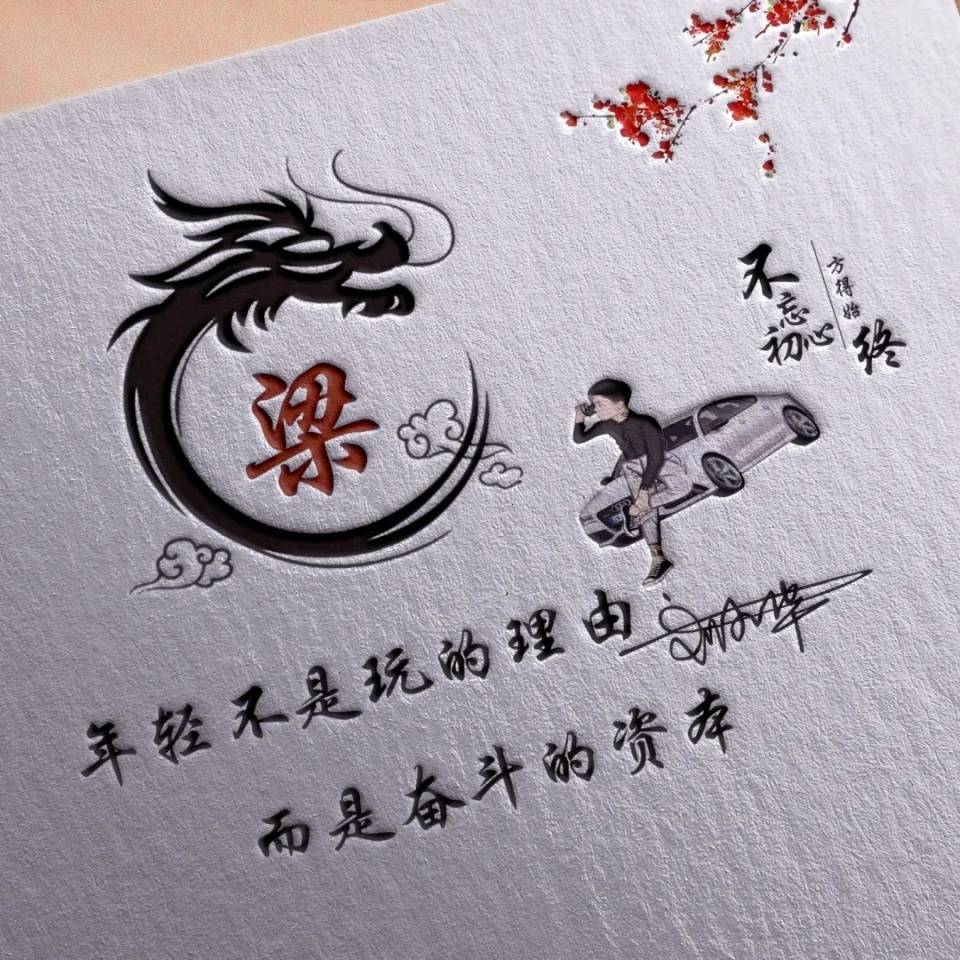 梁
不忘初心
方得始终
年轻不是玩的理由
而是奋斗的资本